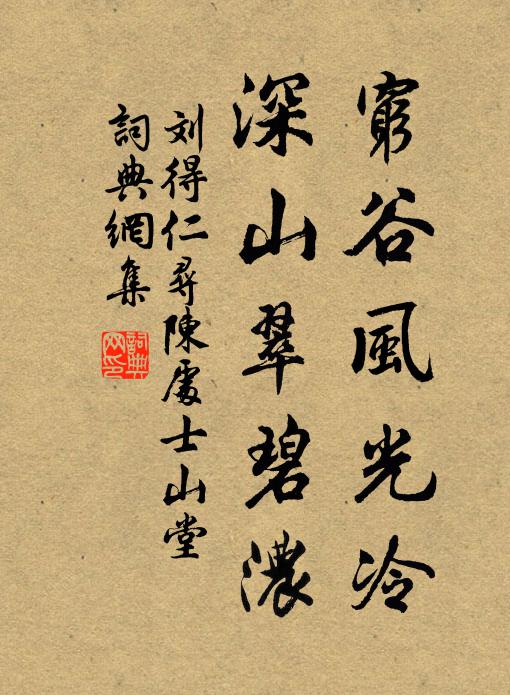 窮谷風光冷
深山翠碧濃
刘得仁尋陳處士山堂
詞典網集
詞典网印